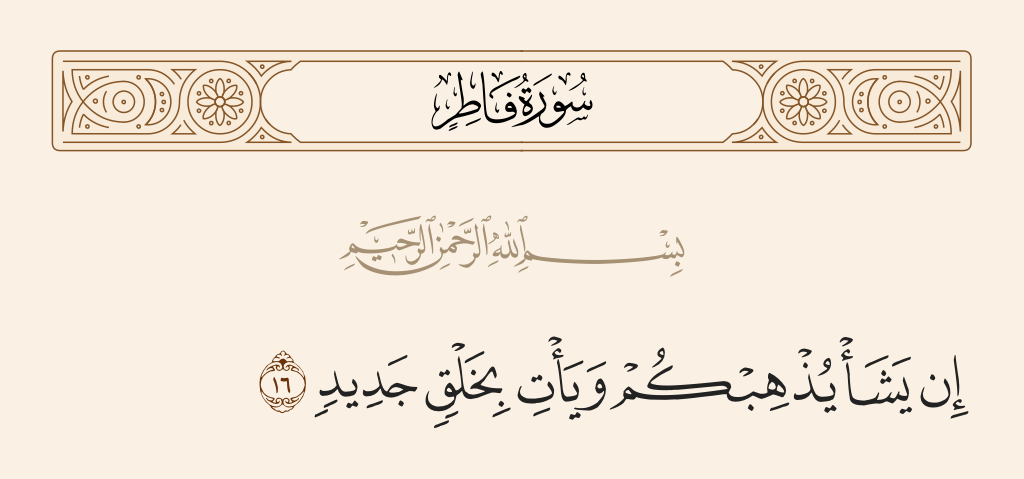 سُورَةُ فَاطِرٍ
بِسْمِ ٱللَّهِ ٱلرَّحْمَٰنِ ٱلرَّحِيمِ
إِن يَشَأْ يُذْهِبْكُمْ وَيَأْتِ بِخَلْقٍ جَدِيدٍ ١٦